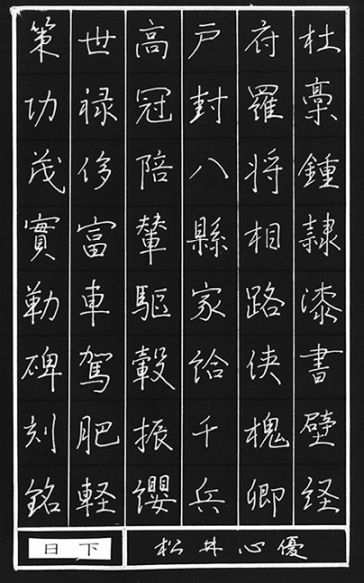 杜藁鍾隷漆書壁経
府羅将相路侠槐卿
戸封八縣家給千兵
高冠陪輦驅轂振纓
世禄侈富車駕肥軽
策功茂實勒碑刻銘
日下
松井心優